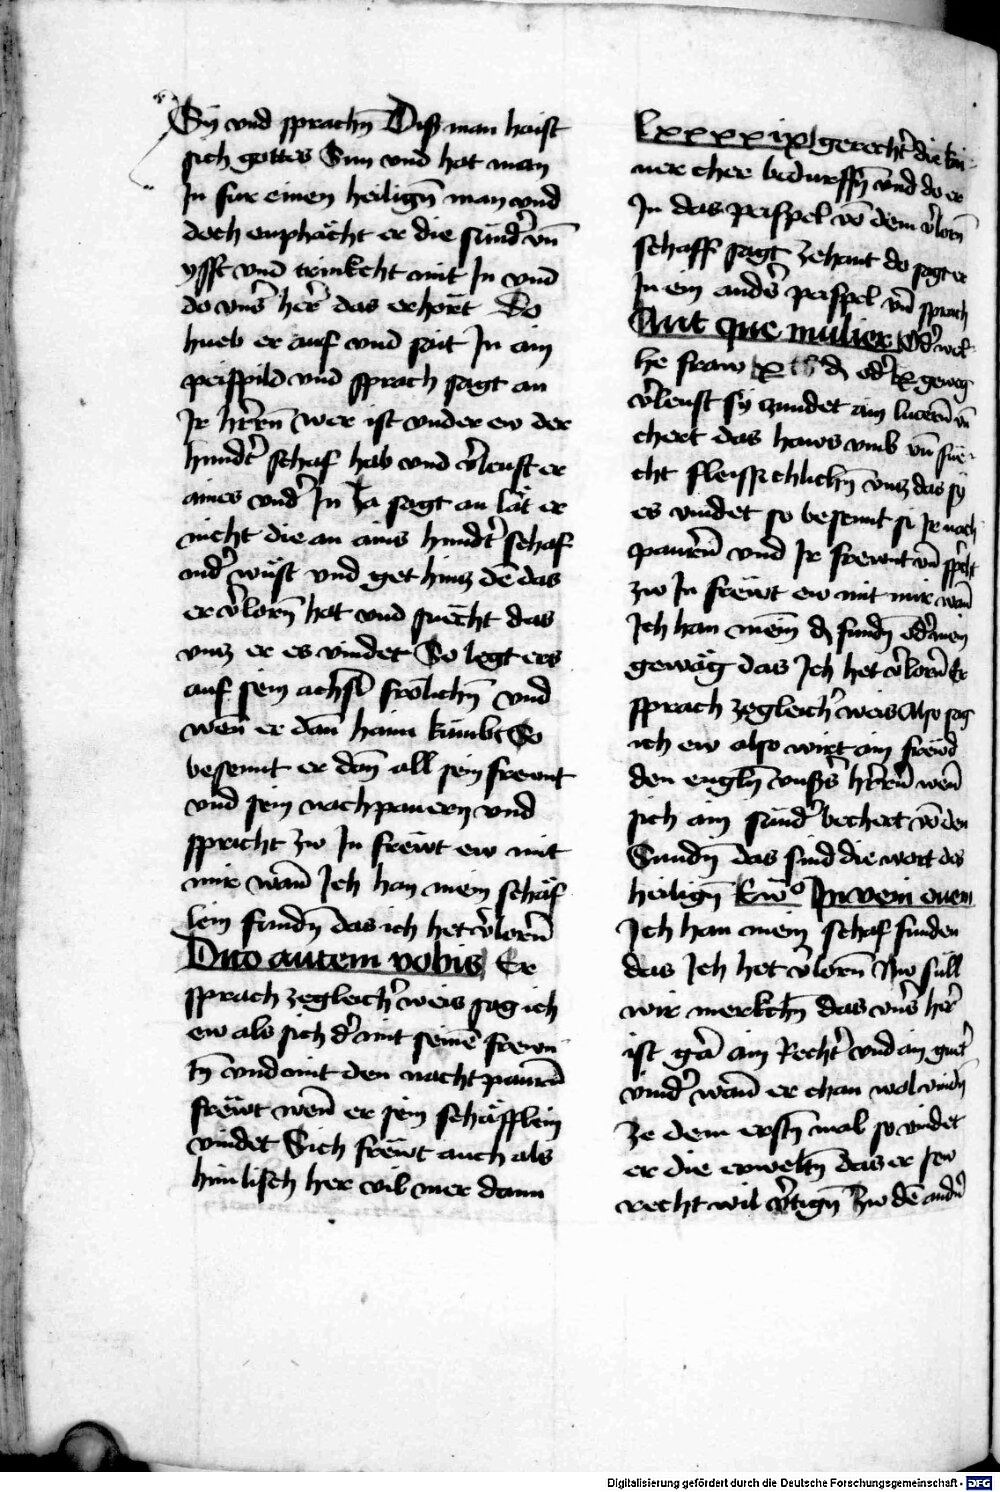 Sy vnd sprachn̄ Diß man haist
sich gottes Sun vnd hat man
In fur einen heilign̄ man vnd
doch enphächt er die sünd͛ vn̄
ysst vnd trinkcht mit In vnd
do vns͛ her͛ das erhort Do
hueb er auf vnd sait In ain
peispild vnd sprach sagt an
Ir hr͛rn̄ wer ist vnder ew der
hundt͛ schaf hab vnd v͛leust er
aines vnd͛ In Ja sagt an lät er
nicht die an ains hundt͛ schaf
in d͛ wüst vnd get hinz dē das
er v͛lorn̄ hat vnd suecht das
vnz er es vindet So legt ers
auf sein achsl frölichn̄ vnd
wen̄ er dan̄ haim kümbt So
besennt er dan̄ all sein frewnt
vnd sein nachpauern vnd
spricht zw In frëwt ew mit
mir wan̄ Ich han mein schäf
lein fundn̄ das ich het v͛lorn̄
Dico autem vobis Er
sprach zegleich͛ weis sag ich
ew als sich d͛ mit seinē frewn
tn̄ vnd mit den nachtpaurn̄
frëwt wen̄ er sein schäfflein
vindet Sich frëwt auch als
himlisch her vil mer dann
lxxxxix gerecht͛ die kai
ner cher bedurffn̄ vnd do er
In das peispel vō dem v͛lorn̄
schaff sagt zehant do sagt er
In ein and͛s peispel vn̄ sprach
Aut que mulier Od͛ wel
he fraw x od͛ x gewag
v͛leust sy zundet ain lucern̄ vn̄
chert das haws vmb vn̄ sue
cht fleissichlichn̄ vnz das sy
es vindet so besennt si Ir noch
paurn̄ vnd Ir frewnt vn̄ spricht
zw In frëwt ew mit mir wan̄
Ich han mein fundn̄ od͛ mein
gewäg das Ich het v͛lorn̄ Er
sprach zegleich͛ weis Also sag
ich ew also wirt ain frëwd
den engln̄ vnß͛s hr͛rn̄ wen̄
sich ain sünd͛ bechert vō den
Sundn̄ das sind die wort des
heilign̄ Ewº Inveni ouem
Ich han mein schaf funden
das Ich het v͛lorn̄ Nw süll
wir merkchn̄ das vn͛s her͛
ist gar ain Recht͛ vnd ain guet͛
vind͛ wan̄ er chan wol vindn̄
ze dem erstn̄ mal so vindet
er die erweltn̄ das er sew
recht wil v͛tign̄ zw dē andn̄
Digitalisierung gefördert durch die Deutsche Forschungsgemeinschaft - DFG